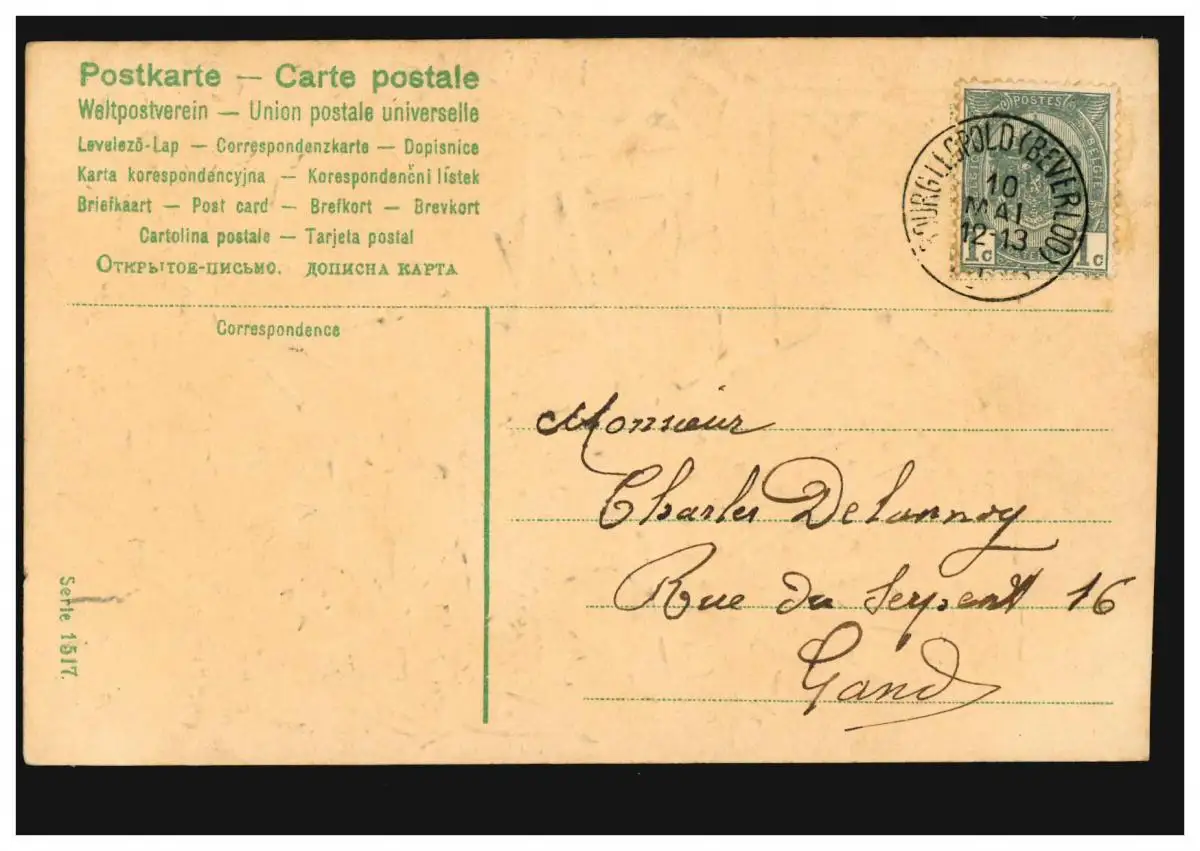 Postkarte — Carte postale
Weltpostverein — Union postale universelle
Levelező-Lap — Correspondenzkarte — Dopisnice
Karta korespondencyjna — Korespondenčni lístek
Briefkaart — Post card — Brefkort — Brevkort
Cartolina postale — Tarjeta postal
Открытое-письмо. дописна карта
Correspondence
POSTES
BELGIE
1c 1c
BOURG-LEOPOLD (BEVERLOO)
10
MAI
12-13
Monsieur
Charles Delannoy
Rue du Serpent 16
Gand
Serie 1517.